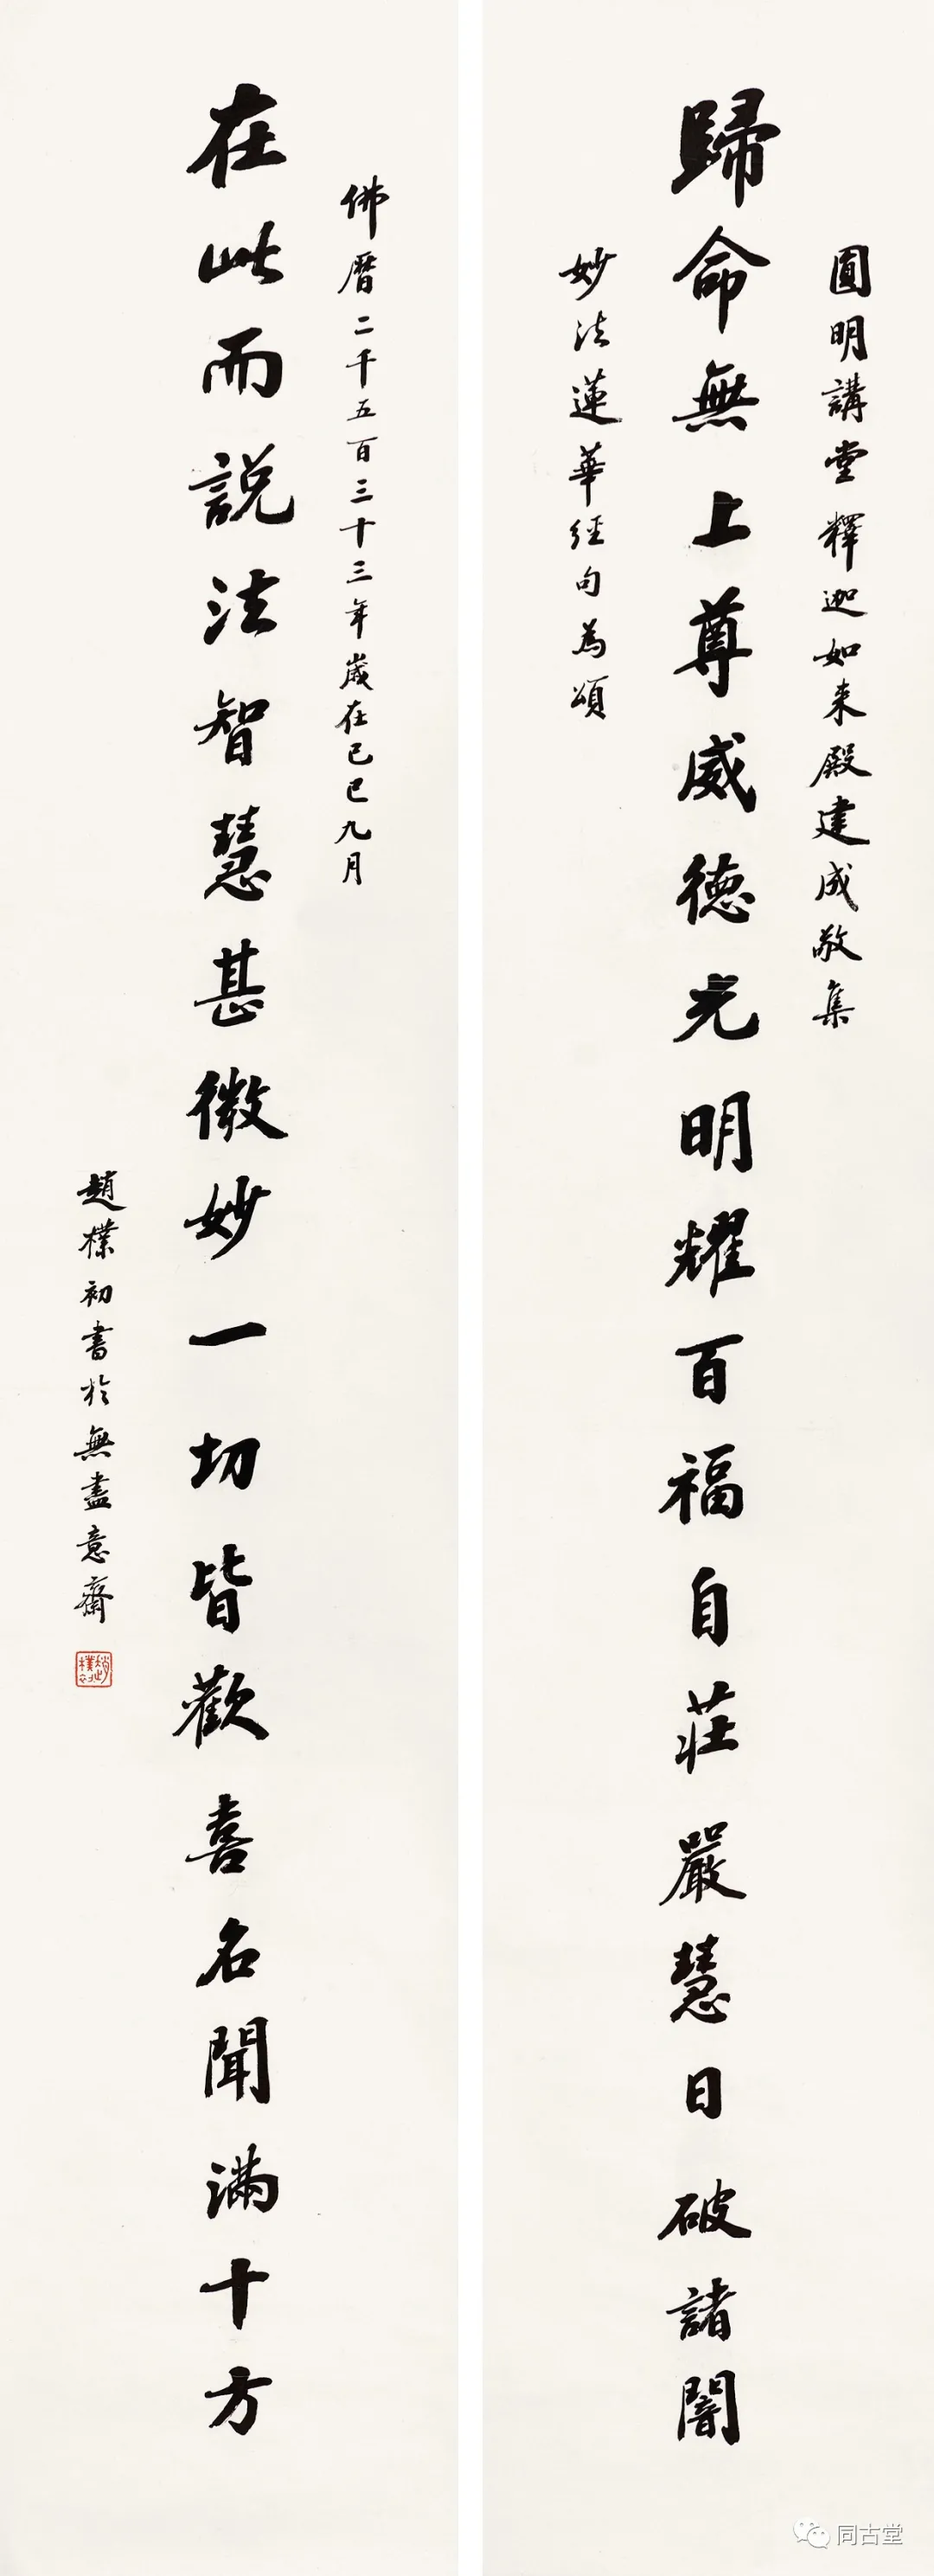 圓明講堂釋迦如来殿建成敬集
歸命無上尊威德光明耀百福自莊嚴慧日破諸闇
妙法蓮華經句為頌
佛曆二千五百三十三年歲在己巳九月
在此而説法智慧甚微妙一切皆歡喜名聞滿十方
趙樸初書於無盡意齋
趙樸初
同古堂